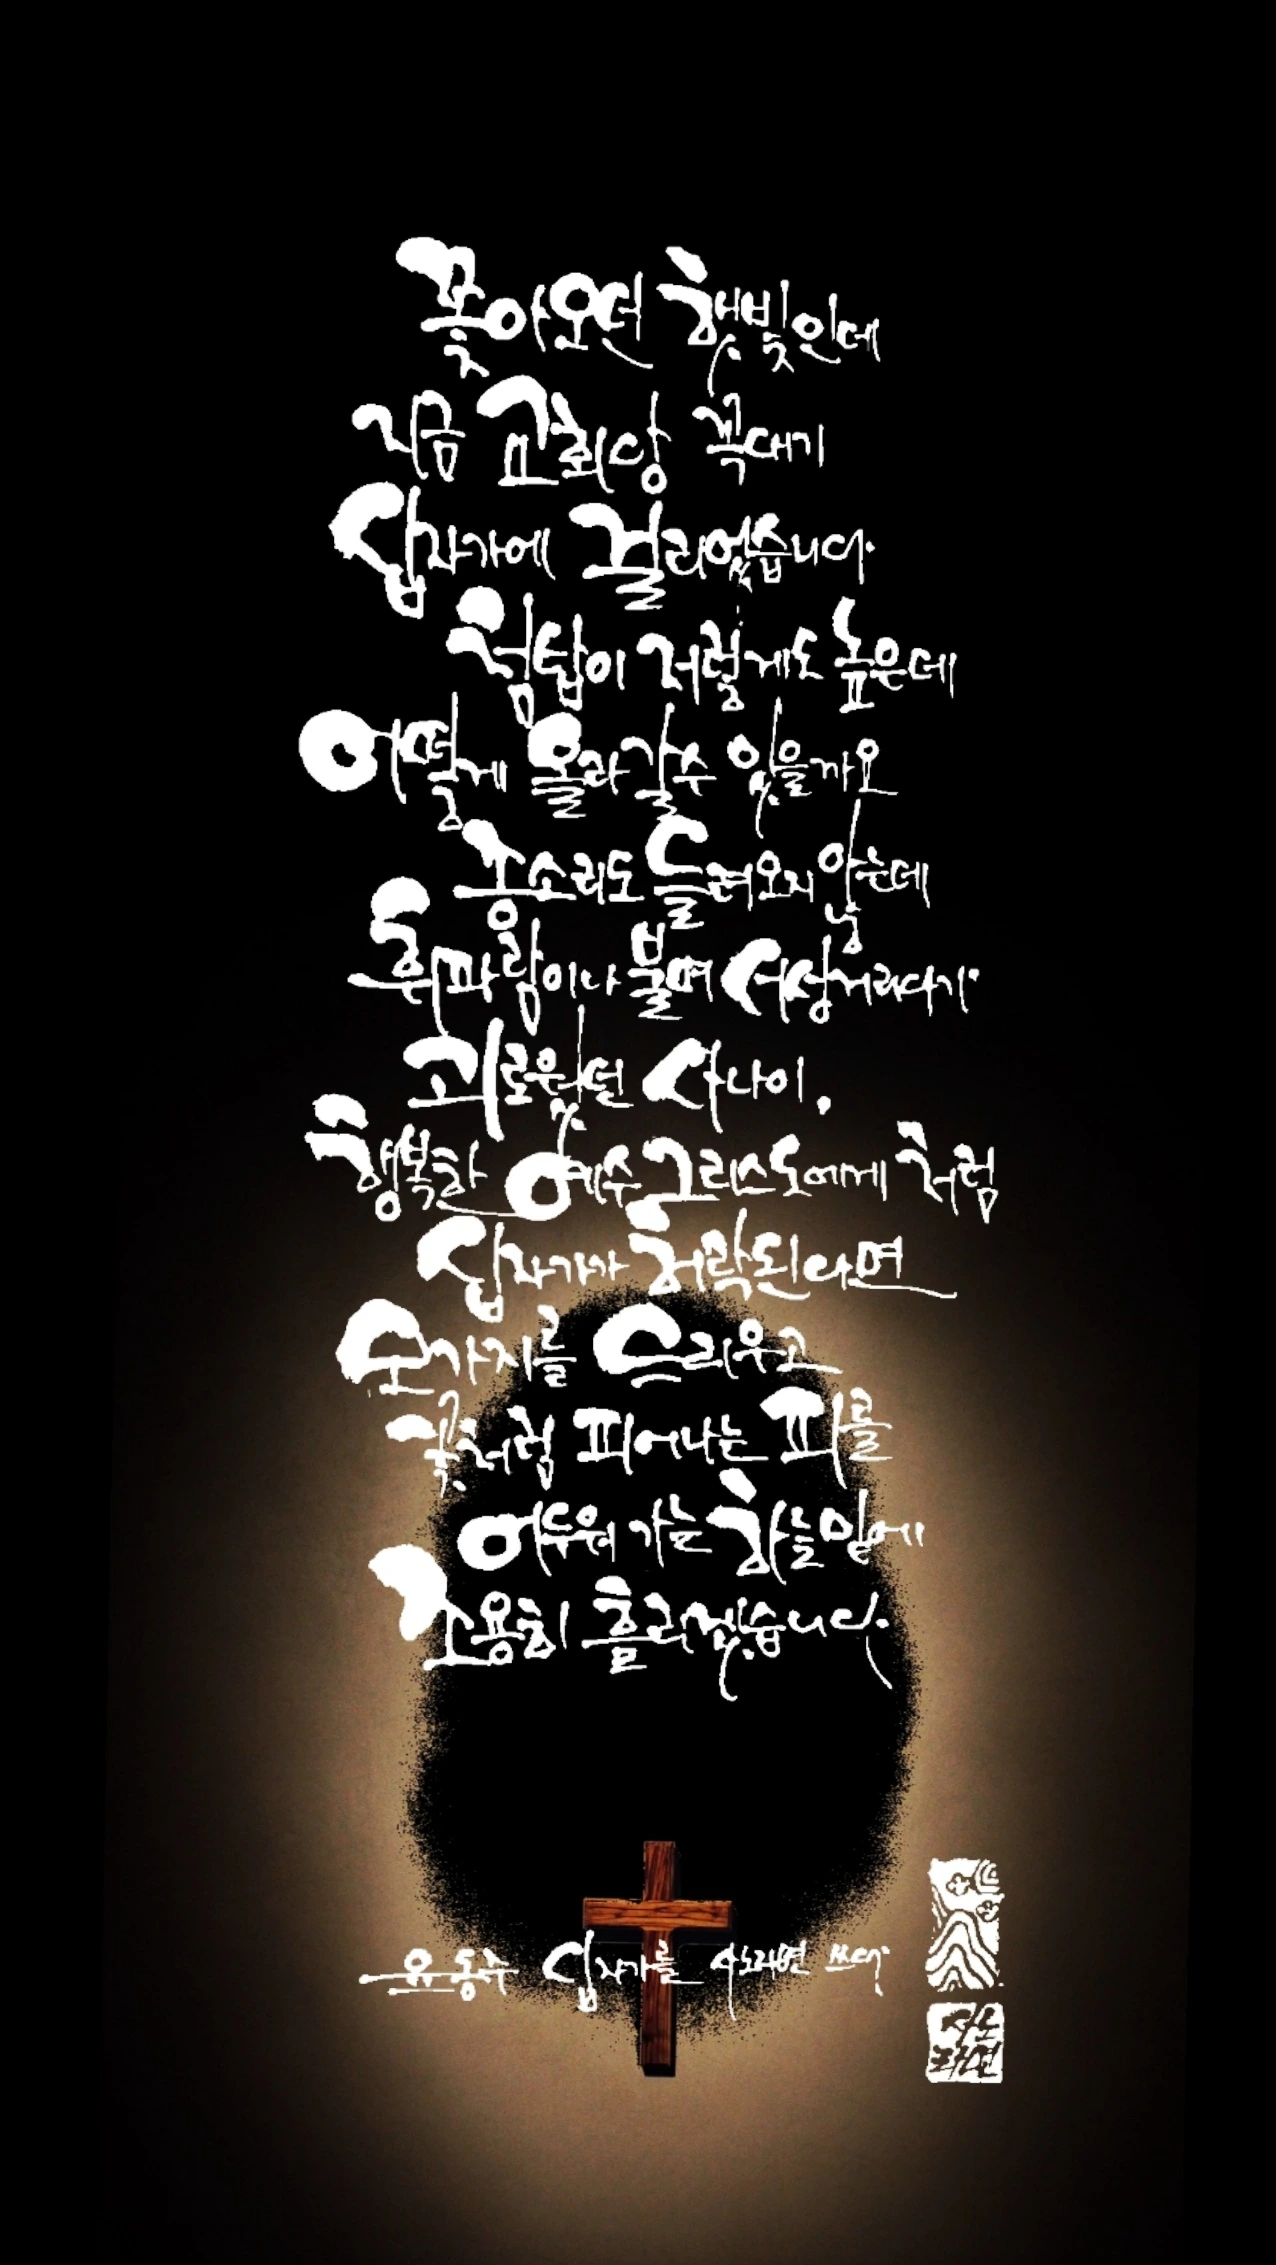 쫓아오던 햇빛인데
지금 교회당 꼭대기
십자가에 걸리었습니다.
첨탑이 저렇게도 높은데
어떻게 올라갈수 있을까요
종소리도 들려오지 않는데
휘파람이나 불며 서성거리다가
괴로웠던 사나이,
행복한 예수그리스도에게 처럼
십자가가 허락된다면
모가지를 드리우고
꽃처럼 피어나는 피를
어두워 가는 하늘밑에
조용히 흘리겠습니다.
윤동주 십자가를 쓰다